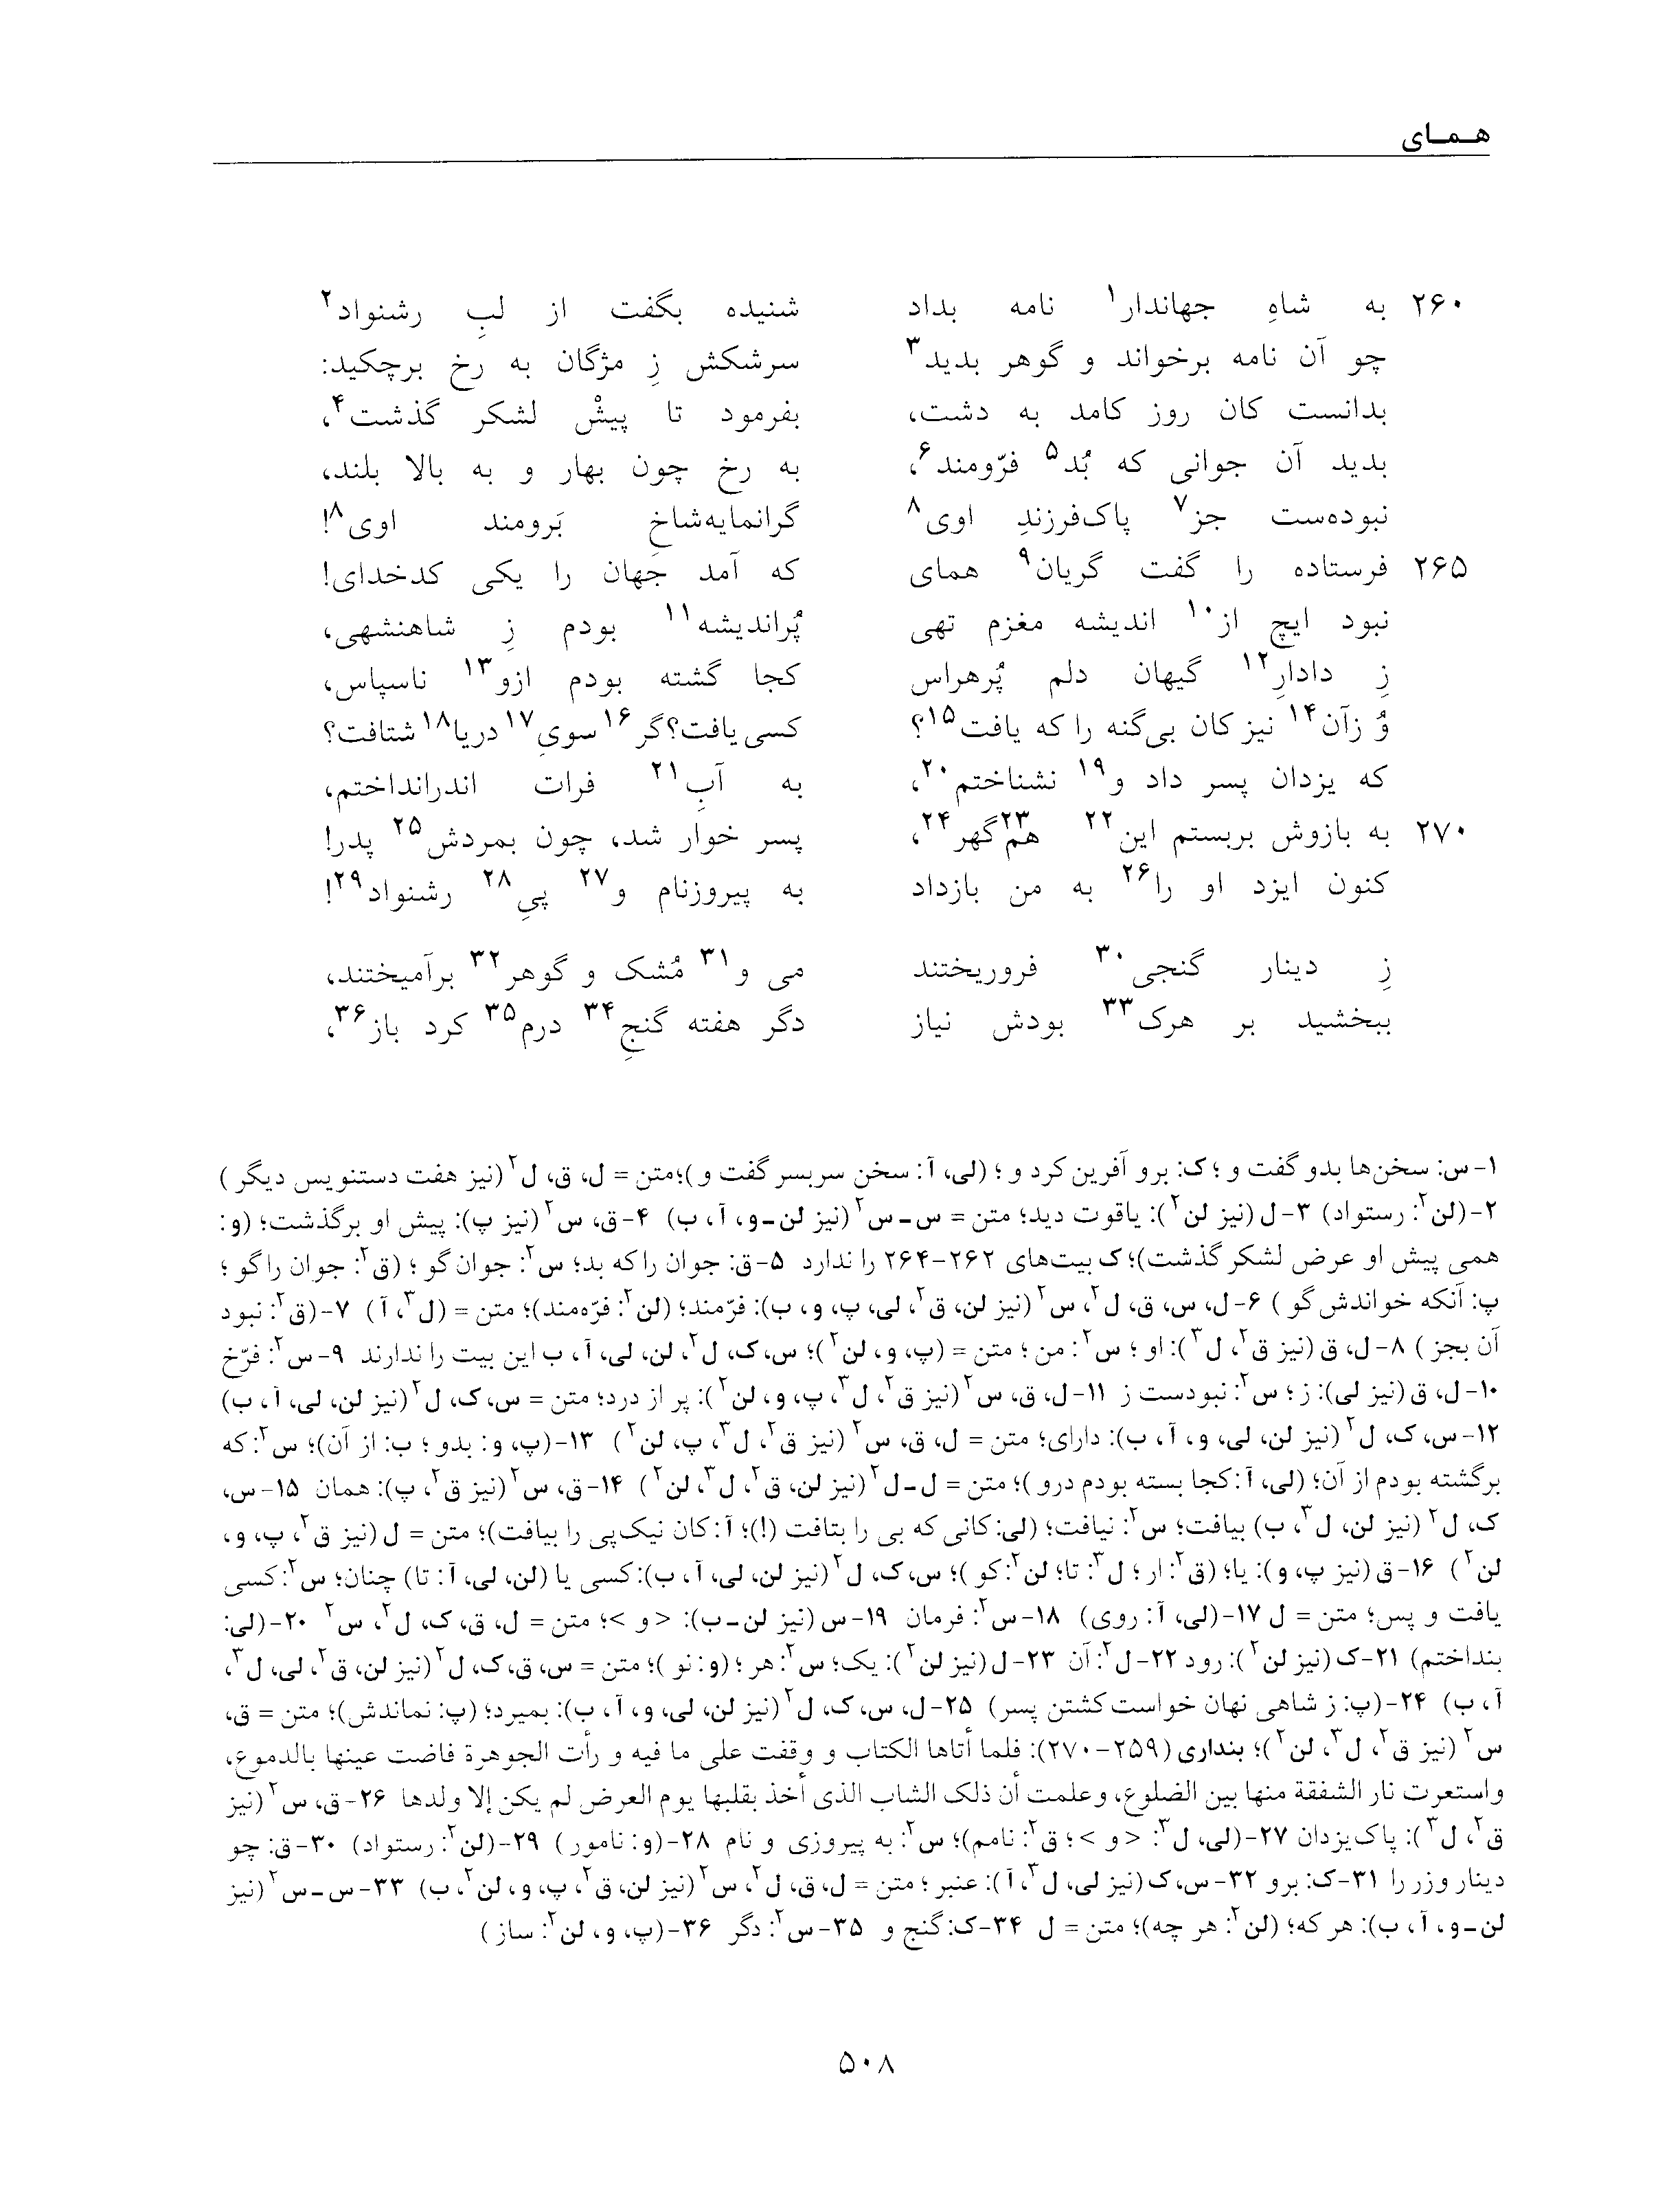 همای
۲۶۰ به شاهِ جهاندار۱ نامه بداد شنیده بگفت از لبِ رشنواد۲
چو آن نامه برخواند و گوهر بدید۳ سرشکش زِ مژگان به رخ برچکید:
بدانست کان روز کامد به دشت، بفرمود تا پیشْ لشکر گذشت۴،
بدید آن جوانی که بُد۵ فرّومند۶، به رخ چون بهار و به بالا بلند،
نبوده‌ست جز۷ پاک‌فرزندِ اوی۸ گرانمایه‌شاخِ بَرومند اوی۸!
۲۶۵ فرستاده را گفت گریان۹ همای که آمد جهان را یکی کدخدای!
نبود ایچ از۱۰ اندیشه مغزم تهی پُراندیشه۱۱ بودم زِ شاهنشهی،
زِ دادارِ۱۲ گیهان دلم پُرهراس کجا گشته بودم ازو۱۳ ناسپاس،
وُ زآن۱۴ نیز کان بی‌گنه را که یافت۱۵؟ کسی یافت؟ گر۱۶ سویِ۱۷ دریا۱۸ شتافت؟
که یزدان پسر داد و۱۹ نشناختم۲۰، به آبِ۲۱ فرات اندرانداختم،
۲۷۰ به بازوش بربستم این۲۲ هم۲۳گهر۲۴، پسر خوار شد، چون بمردش۲۵ پدر!
کنون ایزد او را۲۶ به من بازداد به پیروزنام و۲۷ پیِ۲۸ رشنواد۲۹!
زِ دینار گنجی۳۰ فروریختند می و۳۱ مُشک و گوهر۳۲ برآمیختند،
ببخشید بر هرک۳۳ بودش نیاز دگر هفته گنجِ۳۴ درم۳۵ کرد باز۳۶،
۱- س: سخن‌ها بدو گفت و؛ ک: برو آفرین کرد و؛ (لی، آ: سخن سربسر گفت و)؛ متن = ل، ق، ل۲ (نیز هفت دستنویس دیگر)
۲-(لن۲: رستواد) ۳-ل (نیز لن۲): یاقوت دید؛ متن = س-س۲ (نیز لن-و، آ، ب) ۴-ق، س۲ (نیز پ): پیش او برگذشت؛ (و:
همی پیش او عرض لشکر گذشت)؛ ک بیت‌های ۲۶۲-۲۶۴ را ندارد ۵-ق: جوان را که بد؛ س۲: جوان گو؛ (ق۲: جوان را گو؛
پ: آنکه خواندش گو) ۶-ل، س، ق، ل۲، س۲ (نیز لن، ق۲، لی، پ، و، ب): فرّمند؛ (لن۲: فرّه‌مند)؛ متن = (ل۳، آ) ۷-(ق۲: نبود
آن بجز) ۸-ل، ق (نیز ق۲، ل۳): او؛ س۲: من؛ متن = (پ، و، لن۲)؛ س، ک، ل۲، لن، لی، آ، ب این بیت را ندارند ۹-س۲: فرّخ
۱۰-ل، ق (نیز لی): ز؛ س۲: نبودست ز ۱۱-ل، ق، س۲ (نیز ق۲، ل۳، پ، و، لن۲): پر از درد؛ متن = س، ک، ل۲ (نیز لن، لی، آ، ب)
۱۲-س، ک، ل۲ (نیز لن، لی، و، آ، ب): دارای؛ متن = ل، ق، س۲ (نیز ق۲، ل۳، پ، لن۲) ۱۳-(پ، و: بدو؛ ب: از آن)؛ س۲: که
برگشته بودم از آن؛ (لی، آ: کجا بسته بودم درو)؛ متن = ل-ل۲ (نیز لن، ق۲، ل۳، لن۲) ۱۴-ق، س۲ (نیز ق۲، پ): همان ۱۵-س،
ک، ل۲ (نیز لن، ل۳، ب) بیافت؛ س۲: نیافت؛ (لی: کانی که بی را بتافت (!)؛ آ: کان نیک‌پی را بیافت)؛ متن = ل (نیز ق۲، پ، و،
لن۲) ۱۶-ق (نیز پ، و): یا؛ (ق۲: ار؛ ل۳: تا؛ لن۲: کو)؛ س، ک، ل۲ (نیز لن، لی، آ، ب): کسی یا (لن، لی، آ: تا) چنان؛ س۲: کسی
یافت و پس؛ متن = ل ۱۷-(لی، آ: روی) ۱۸-س۲: فرمان ۱۹-س (نیز لن-ب): <و>؛ متن = ل، ق، ک، ل۲، س۲ ۲۰-(لی:
بنداختم) ۲۱-ک (نیز لن۲): رود ۲۲-ل۲: آن ۲۳-ل (نیز لن۲): یک؛ س۲: هر؛ (و: نو)؛ متن = س، ق، ک، ل۲ (نیز لن، ق۲، لی، ل۳،
آ، ب) ۲۴-(پ: ز شاهی نهان خواست کشتن پسر) ۲۵-ل، س، ک، ل۲ (نیز لن، لی، و، آ، ب): بمیرد؛ (پ: نماندش)؛ متن = ق،
س۲ (نیز ق۲، ل۳، لن۲)؛ بنداری (۲۵۹-۲۷۰): فلما أتاها الکتاب و وقفت علی ما فیه و رأت الجوهرة فاضت عینها بالدموع،
واستعرت نار الشفقة منها بین الضلوع، وعلمت أن ذلک الشاب الذی أخذ بقلبها یوم العرض لم یکن إلا ولدها ۲۶-ق، س۲ (نیز
ق۲، ل۳): پاک‌یزدان ۲۷-(لی، ل۳: <و>؛ ق۲: نامم)؛ س۲: به پیروزی و نام ۲۸-(و: نامور) ۲۹-(لن۲: رستواد) ۳۰-ق: چو
دینار وزر را ۳۱-ک: برو ۳۲-س، ک (نیز لی، ل۳، آ): عنبر؛ متن = ل، ق، ل۲، س۲ (نیز لن، ق۲، پ، و، لن۲، ب) ۳۳-س-س۲ (نیز
لن-و، آ، ب): هر که؛ (لن۲: هر چه)؛ متن = ل ۳۴-ک: گنج و ۳۵-س۲: دگر ۳۶-(پ، و، لن۲: ساز)
۵۰۸